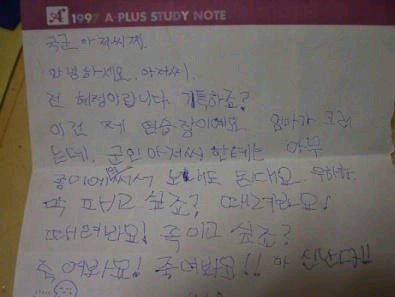 1997 A-PLUS STUDY NOTE
국군 아저씨께.
안녕하세요. 아저씨.
전 혜정이랍니다. 기특하죠?
이건 제 연습장이예요 엄마가 그러
는데. 군인 아저씨 한테는 아무
종이에 써서 보내도 된대요. 우하하
막 패고 싶죠? 때려봐요!
때려봐요! 죽이고 싶죠?
죽여봐요! 죽여봐요!! 아 신난다!!